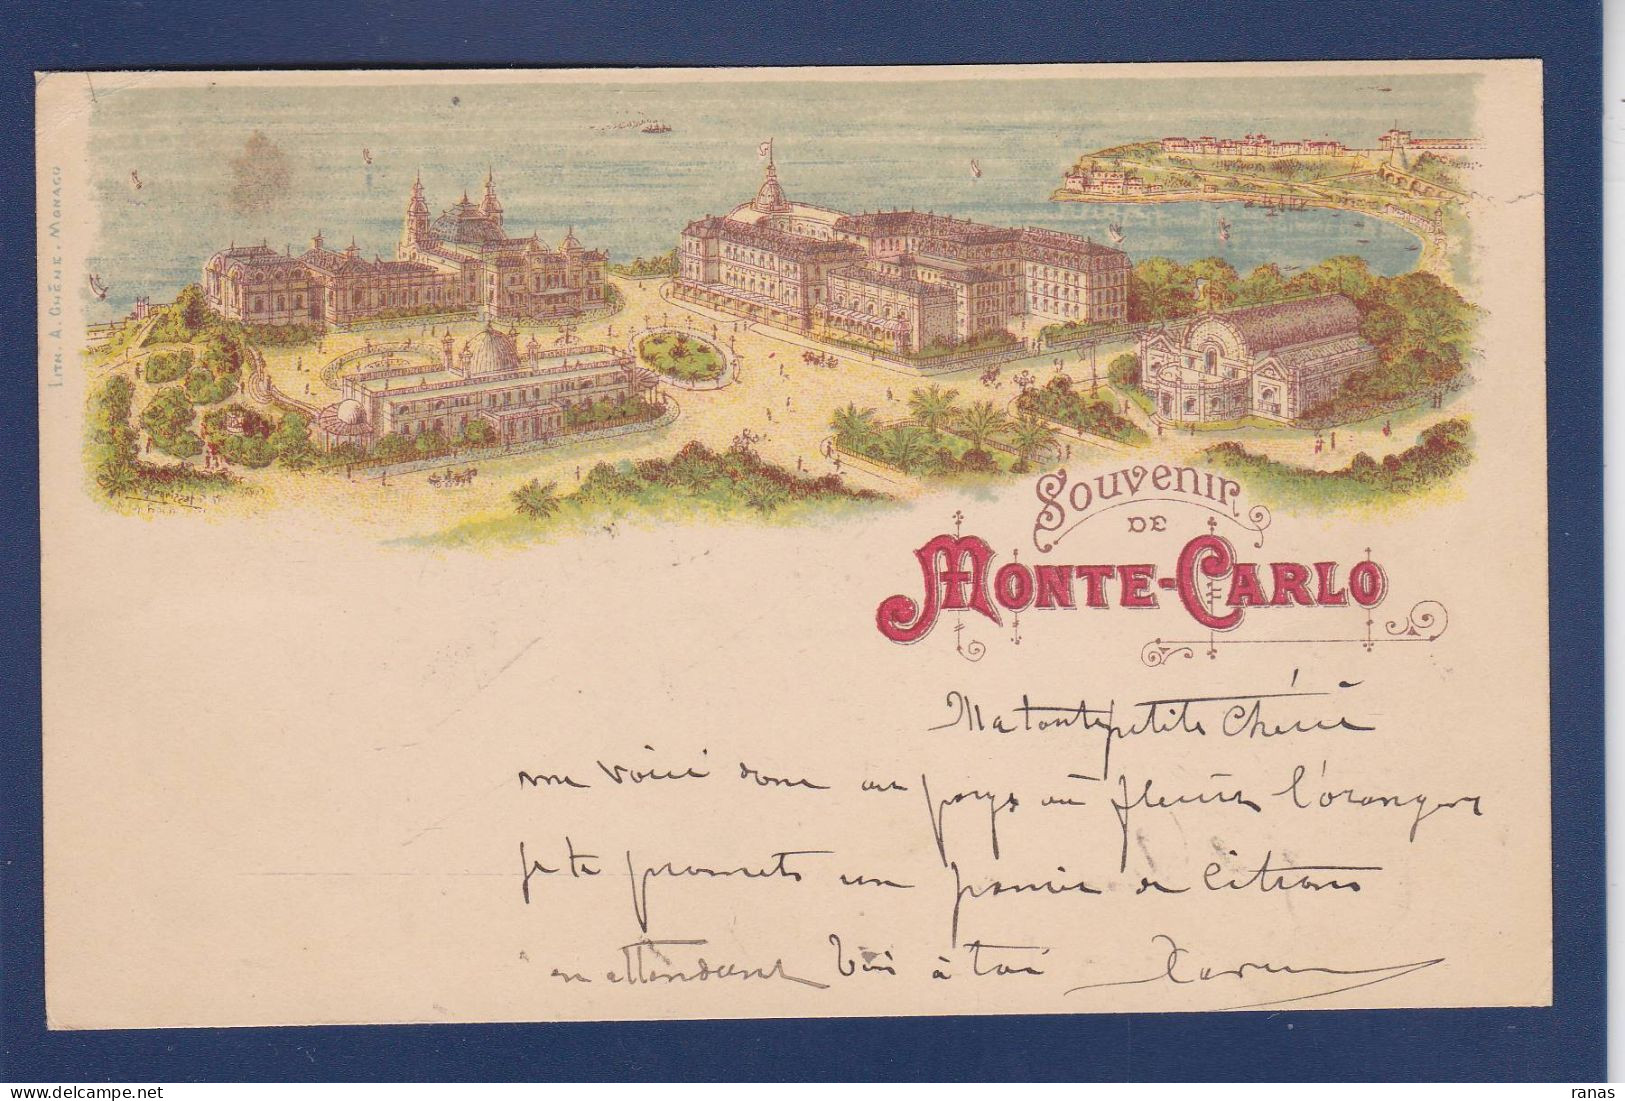 LITH. A. GHÉNE. MONACO
Souvenir
DE
MONTE-CARLO
Ma toute petite Chérie
me voici donc au pays où fleurit l'oranger
je te promets un panier de Citrons
en attendant bien à toi
ranas